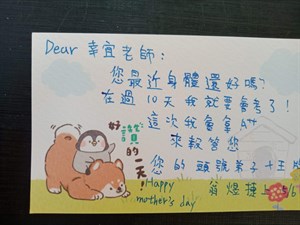 Dear 幸宜老師：
您最近身體還好嗎？
在過10天我就要會考了！
這次我會拿A++
來報答您
好 的一天！
您的頭號弟子+王
Happy
mother's day
翁煜捷上